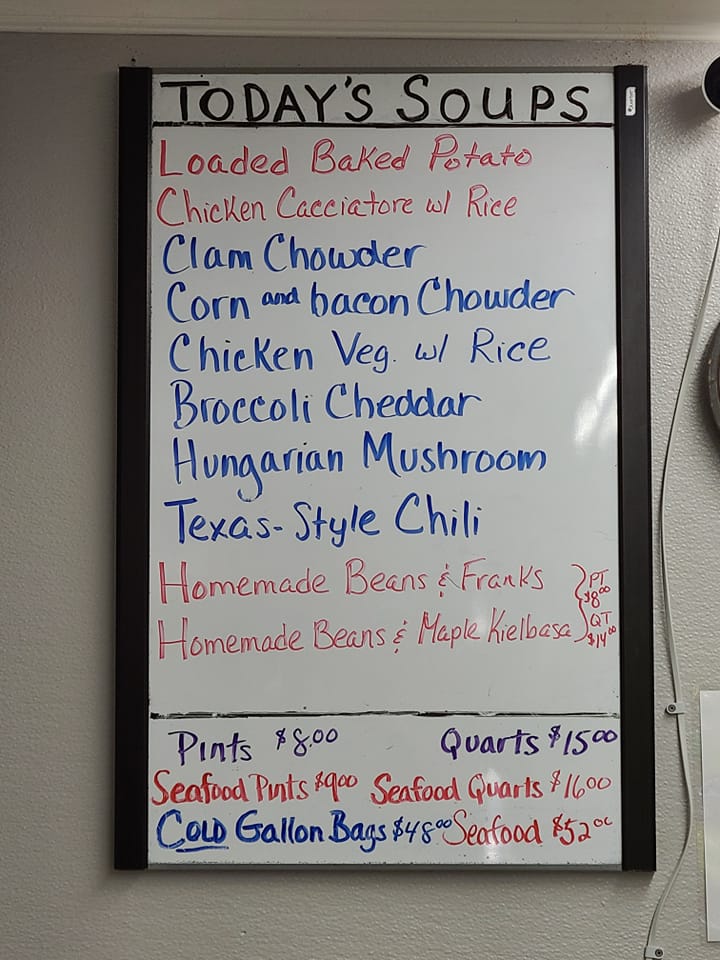 TODAY'S SOUPS
Loaded Baked Potato
Chicken Cacciatore w/ Rice
Clam Chowder
Corn and bacon Chowder
Chicken Veg. w/ Rice
Broccoli Cheddar
Hungarian Mushroom
Texas-Style Chili
Homemade Beans & Franks
Homemade Beans & Maple Kielbasa
PT
$8.00
QT
$14.00
Pints $8.00 Quarts $15.00
Seafood Pints $9.00 Seafood Quarts $16.00
COLD Gallon Bags $48.00 Seafood $52.00